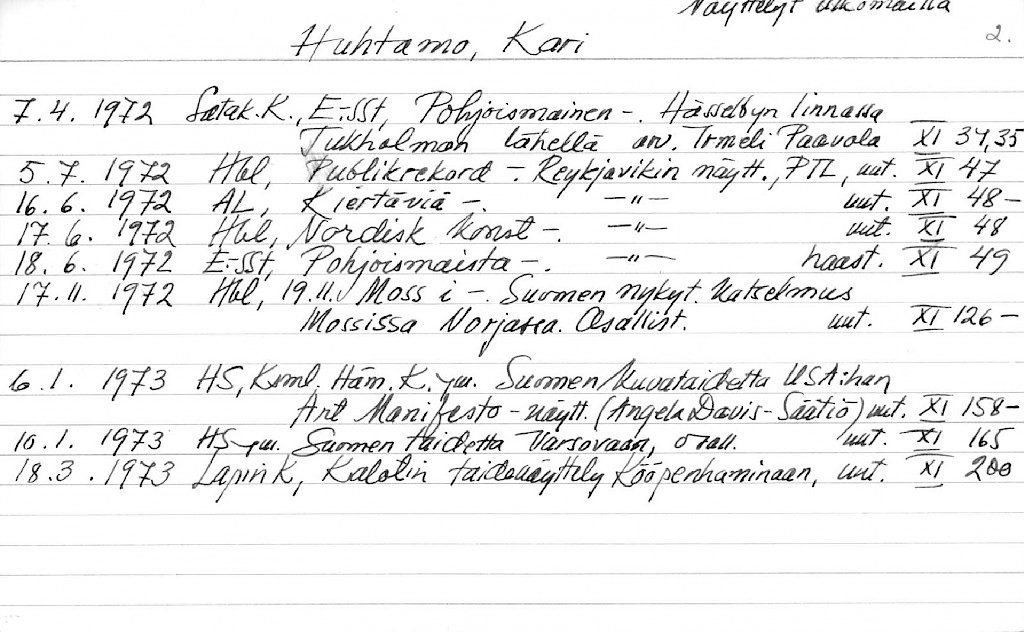 Näyttelyt ulkomailla
Huhtamo, Kari 2.
7.4. 1972 Satak.K., E-SSt, Pohjoismainen -. Hässelbyn linnassa
Tukholman lähellä arv. Irmeli Paavola XI 34,35
5.7. 1972 Hbl, Publikrekord - Reykjavikin näytt., PTL, uut. XI 47
16.6. 1972 AL, Kiertäviä -. -"- uut. XI 48-
17.6. 1972 Hbl, Nordisk konst -. -"- uut. XI 48
18.6. 1972 E-SSt, Pohjoismaista -. -"- haast. XI 49
17.11. 1972 Hbl, 19.11. Moss i -. Suomen nykyt. katselmus
Mossissa Norjassa. Osallist. uut. XI 126-
6.1. 1973 HS, Ksml. Häm.K. ym. Suomen kuvataidetta USA:han
Art Manifesto - näytt. (Angela Davis-Säätiö) uut. XI 158-
10.1. 1973 HS ym. Suomen taidetta Varsovaan, osall. uut. XI 165
18.3. 1973 Lapin K, Kalotin taidenäyttely Kööpenhaminaan, uut. XI 200